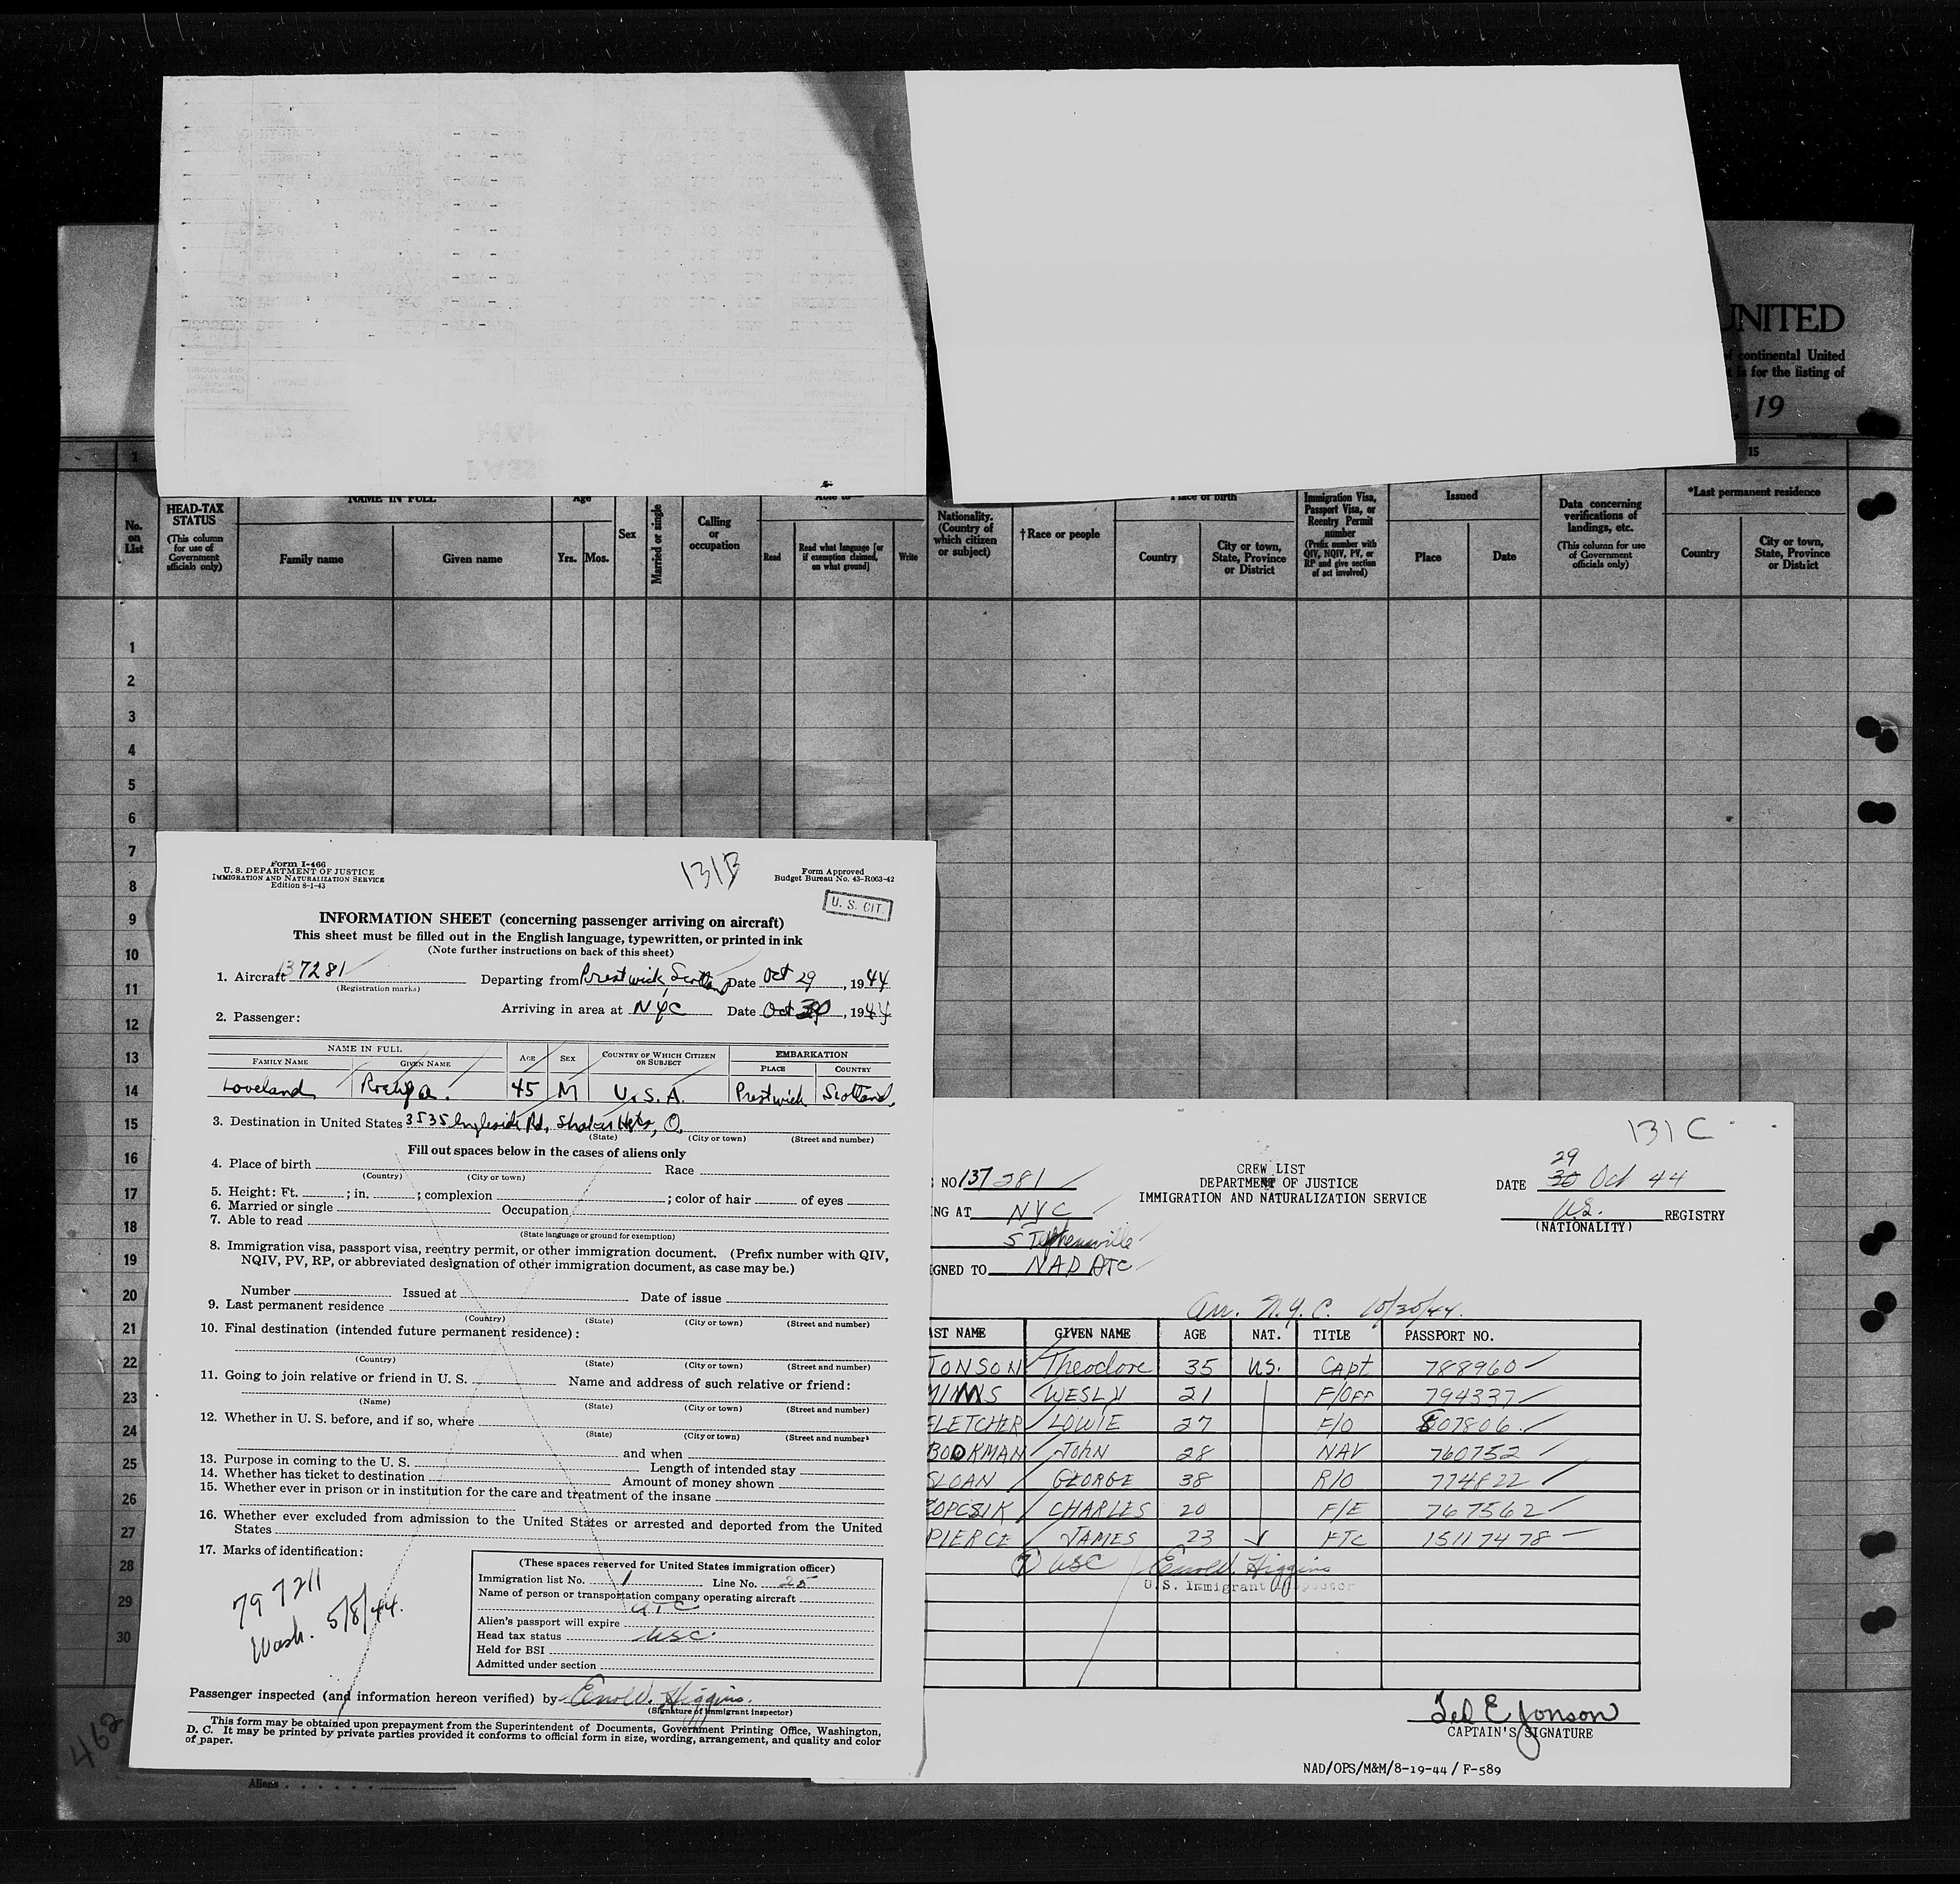 UNITED
of continental United
is for the listing of
, 19
1
15
No. on List
HEAD-TAX STATUS
(This column for use of Government officials only)
NAME IN FULL
Family name
Given name
Age
Yrs.
Mos.
Sex
Married or single
Calling or occupation
Able to—
Read
Read what language [or if exemption claimed, on what ground]
Write
Nationality. (Country of which citizen or subject)
†Race or people
Place of birth
Country
City or town, State, Province or District
Immigration Visa, Passport Visa, or Reentry Permit number
(Prefix number with QIV, NQIV, PV, or RP and give section of act involved)
Issued
Place
Date
Data concerning verifications of landings, etc.
(This column for use of Government officials only)
*Last permanent residence
Country
City or town, State, Province or District
1
2
3
4
5
6
7
8
9
10
11
12
13
14
15
16
17
18
19
20
21
22
23
24
25
26
27
28
29
30
462
Aliens
Form I-466
U. S. DEPARTMENT OF JUSTICE
IMMIGRATION AND NATURALIZATION SERVICE
Edition 8-1-43
131B
Form Approved
Budget Bureau No. 43-R063-42
U. S. CIT.
INFORMATION SHEET (concerning passenger arriving on aircraft)
This sheet must be filled out in the English language, typewritten, or printed in ink
(Note further instructions on back of this sheet)
1. Aircraft 137281 Departing from Prestwick, Scotland Date Oct 29, 1944
(Registration marks)
Arriving in area at NYC Date Oct 30, 1944
2. Passenger:
NAME IN FULL
FAMILY NAME GIVEN NAME AGE SEX COUNTRY OF WHICH CITIZEN OR SUBJECT EMBARKATION
PLACE COUNTRY
Loveland 45 M U.S.A. Prestwick Scotland
3. Destination in United States 3535 Ingleside Rd, Shaker Hgts, O.
(State) (City or town) (Street and number)
Fill out spaces below in the cases of aliens only
4. Place of birth Race
(Country) (City or town)
5. Height: Ft. ; in. ; complexion ; color of hair of eyes
6. Married or single Occupation
7. Able to read
(State language or ground for exemption)
8. Immigration visa, passport visa, reentry permit, or other immigration document. (Prefix number with QIV,
NQIV, PV, RP, or abbreviated designation of other immigration document, as case may be.)
Number Issued at Date of issue
9. Last permanent residence
(Country) (State) (City or town) (Street and number)
10. Final destination (intended future permanent residence):
(Country) (State) (City or town) (Street and number)
11. Going to join relative or friend in U. S. Name and address of such relative or friend:
(Name) (State) (City or town) (Street and number)
12. Whether in U. S. before, and if so, where
(State) (City or town) (Street and number)
and when
13. Purpose in coming to the U. S. Length of intended stay
14. Whether has ticket to destination Amount of money shown
15. Whether ever in prison or in institution for the care and treatment of the insane
16. Whether ever excluded from admission to the United States or arrested and deported from the United
States
17. Marks of identification:
797211
Wash. 5/8/44.
(These spaces reserved for United States immigration officer)
Immigration list No. 1 Line No. 25
Name of person or transportation company operating aircraft
ATC
Alien's passport will expire
Head tax status USC.
Held for BSI
Admitted under section
Passenger inspected (and information hereon verified) by Higgins.
(Signature of immigrant inspector)
This form may be obtained upon prepayment from the Superintendent of Documents, Government Printing Office, Washington,
D. C. It may be printed by private parties provided it conforms to official form in size, wording, arrangement, and quality and color
of paper.
131C
CREW LIST
DEPARTMENT OF JUSTICE
IMMIGRATION AND NATURALIZATION SERVICE
NO 137281
NG AT NYC
Stephenville
GNED TO NAD ATC
29
DATE 30 Oct 44
U.S. REGISTRY
(NATIONALITY)
Arr. N.Y.C. 10/30/44.
AST NAME GIVEN NAME AGE NAT. TITLE PASSPORT NO.
JONSON Theodore 35 U.S. Capt 788960
MIMS WESLY 21 F/OFF 794337
FLETCHER LOWIE 27 F/O 807806
BOOKMAN JOHN 28 NAV 760752
SLOAN GEORGE 38 R/O 774822
KOPCSIK CHARLES 20 F/E 767562
PIERCE JAMES 23 FTC 15117478
(7) USC Higgins
U.S. Immigrant Inspector
Ted E Jonson
CAPTAIN'S SIGNATURE
NAD/OPS/M&M/8-19-44/ F-589